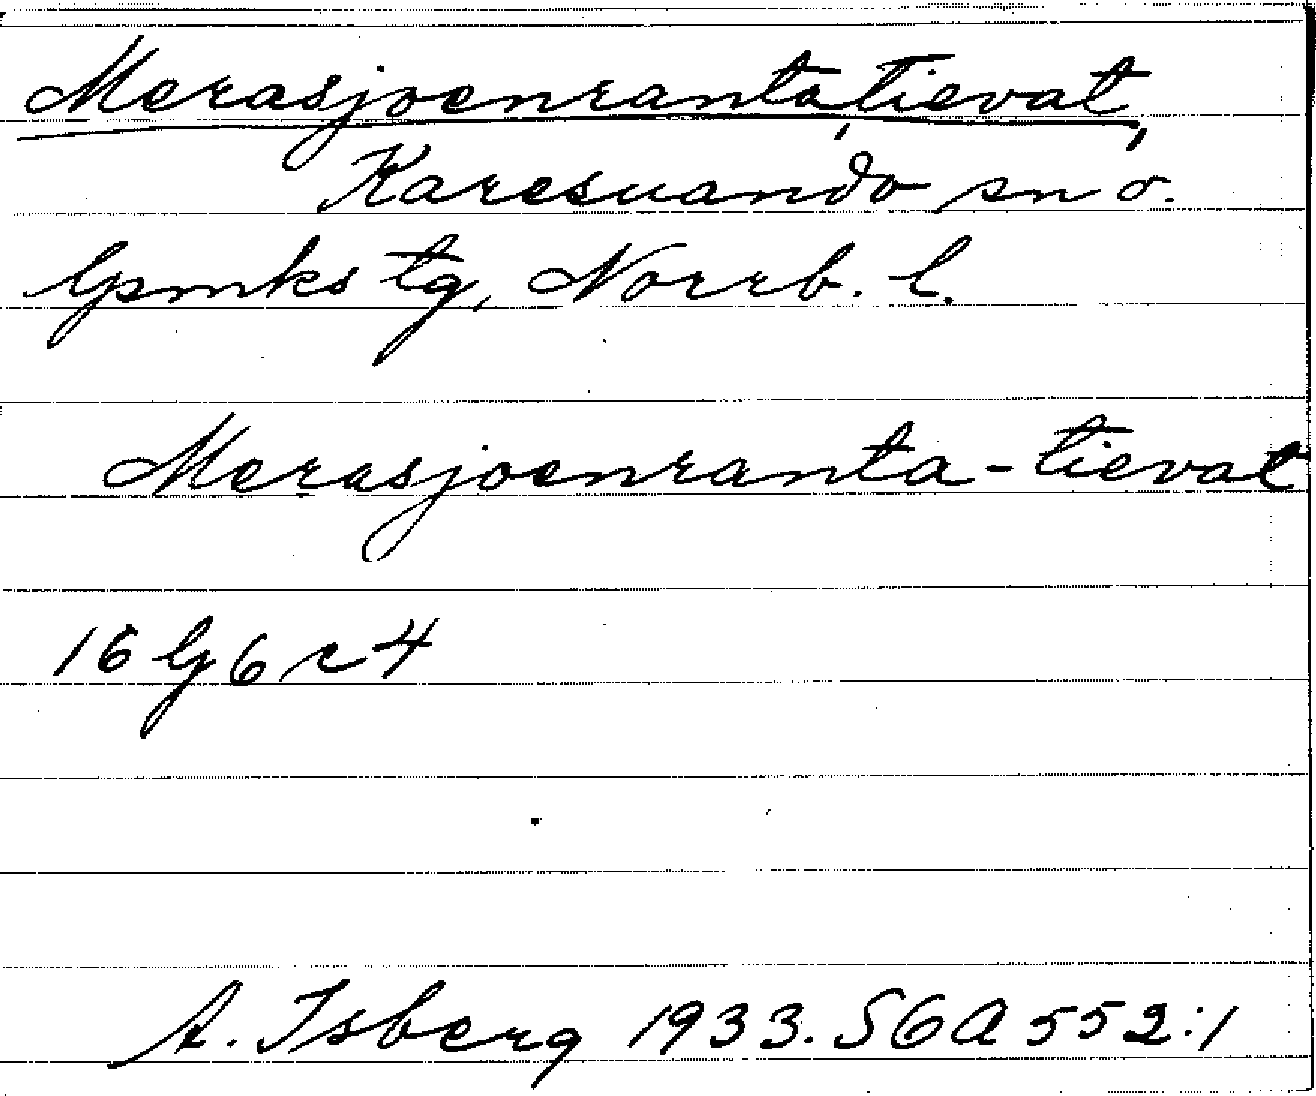 Merasjoenranta,tievat,
Karesuando sn o.
lpmks tg, Norrb. l.
Merasjoenranta-tievat
16 lg 6 c 4
A. Isberg 1933. SGA 552:1